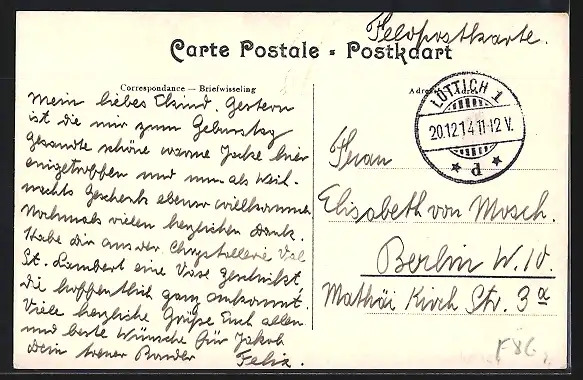 Feldpostkarte.
Carte Postale - Postkaart
Correspondance — Briefwisseling
LÜTTICH 1
20.12.14 11-12 V.
* d *
Mein liebes Kind. Gestern
ist die mir zum Geburtstag
gesandte schöne warme Jacke hier
eingetroffen und nun als Weih-
nachts Geschenk ebenso willkommen
Nochmals vielen herzlichen Dank.
Habe dir aus der Chrystallerie Val
St. Lambert eine Vase geschickt,
die hoffentlich ganz ankommt.
Viele herzliche Grüße Euch allen
und beste Wünsche für Jakob
Dein treuer Bruder Felix.
Frau
Elisabeth von Mosch.
Berlin W. 10
Mathäi Kirch Str. 3 a
F86